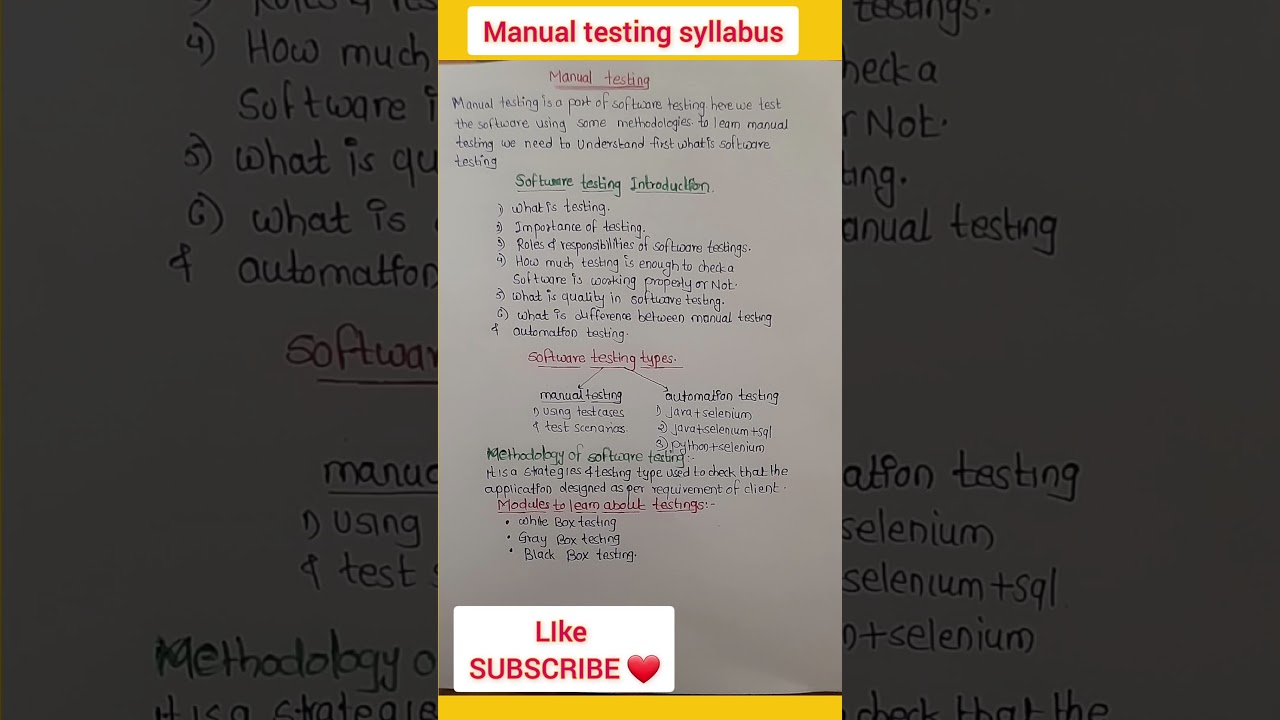 Manual testing syllabus
Manual testing
Manual testing is a part of software testing. here we test
the software using some methodologies. to learn manual
testing we need to understand first what is software
testing
Software testing Introduction.
1) what is testing.
2) Importance of testing.
3) Roles & responsibilities of software testings.
4) How much testing is enough to check a
Software is working properly or Not.
5) what is quality in software testing.
6) what is difference between manual testing
& automation testing.
Software testing types.
manual testing
1) using testcases
& test scenarios.
automation testing
1) java+selenium
2) java+selenium+sql
3) python+selenium
Methodology of software testing:-
It is a strategies & testing type used to check that the
application designed as per requirement of client.
Modules to learn about testings:-
• White Box testing
• Gray Box testing
• Black Box testing.
LIke
SUBSCRIBE ❤️